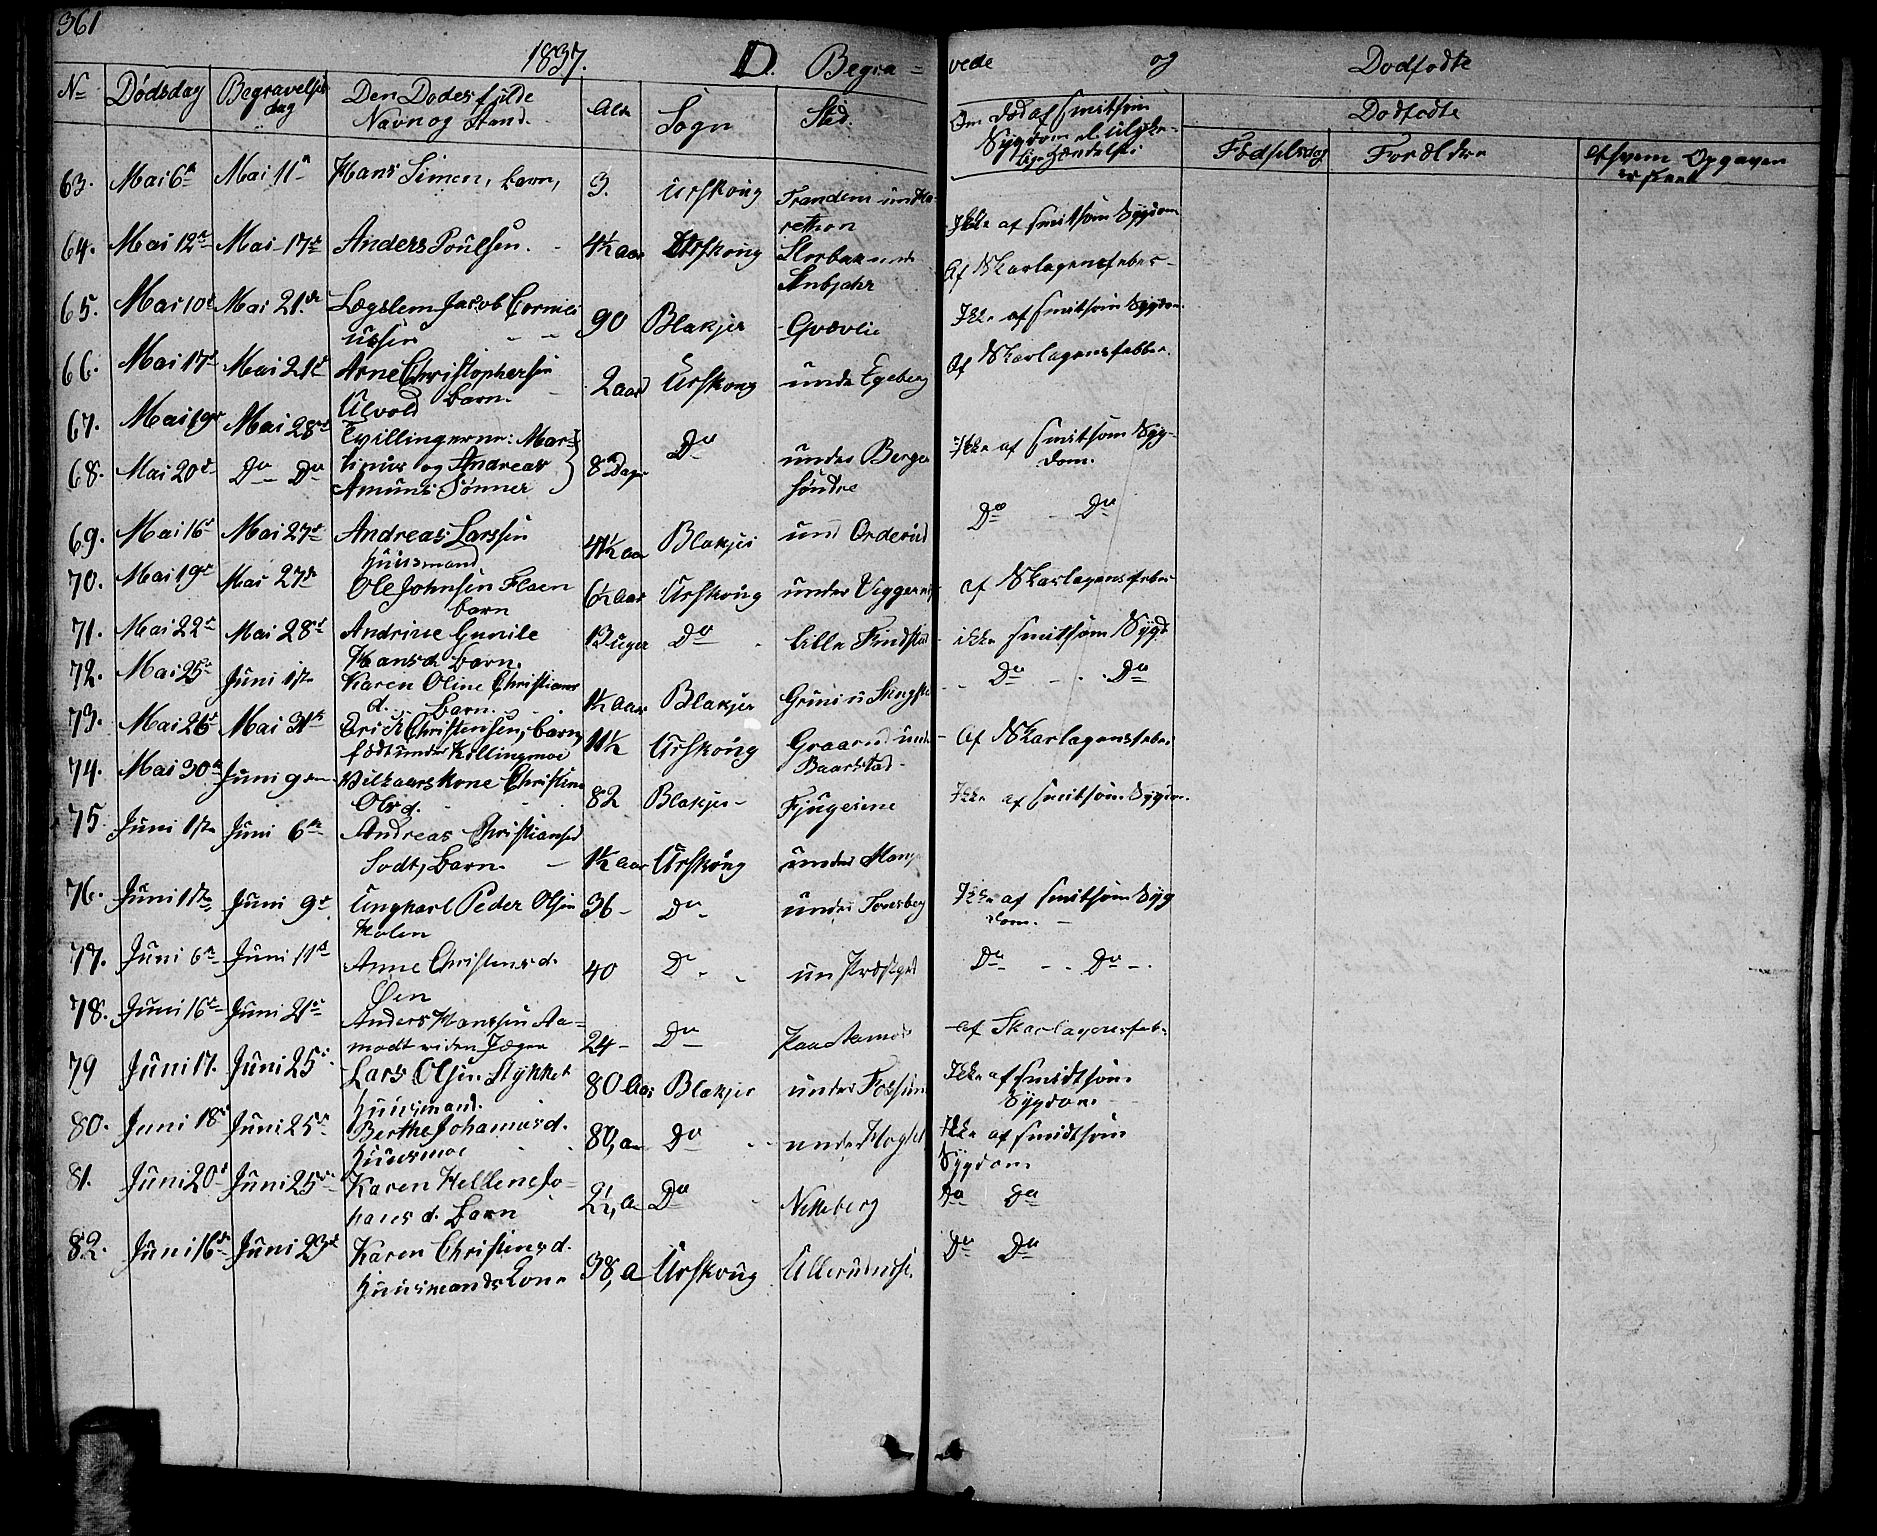 361
1837. D. Begra= vede og Dodfodte
No Dödsdag Begravelses dag Den Dodes fulde Navn og Stand. Alder Sogn Sted. Om Död af smitsom Sygdom el. ulykkelige Hændelser Dodfodte
Fodselsdag Forældre af hvem Opgaven er skeet
63. Mai 6te Mai 11te Hans Simen, barn, 3. Urskoug
Ikke af smitsom Sygdom
64. Mai 12te Mai 17de Anders Poulsen. 4½ aar Urskoug
Af Skarlagensfeber
65. Mai 10de Mai 21de Lægslem Jacob Corneli
ussen 90 Blakjer Ikke af smitsom Sygdom.
66. Mai 17de Mai 21de Arne Christophersen
Ulvold barn. 2 aar Urskoug under Egeberg Af Skarlagensfeber.
67. Mai 19de Mai 28de Tvillingerne: Mar-
68. Mai 20de Do Do tinus og Andreas 8te Dage Do under Berger
Amunds Sönner söndre Ikke af smitsom Syg-
dom.
69. Mai 16de Mai 27de Andreas Larssen
Huusmand 41½ aar Blakjer und Orderud Do Do
70. Mai 19de Mai 27de Ole Johnsen Floen
barn 6½ aar Urskoug under af Skarlagensfeber
71. Mai 22de Mai 28de Andrine Gunile
Hansd. barn. 13 uger Do Lille Finstad ikke smitsom Sygd
72. Mai 25de Juni 1ste Karen Oline Christians
d. barn. 1½ aar Blakjer Do Do
73. Mai 26de Mai 31te Erik Christensen, barn,
födt under Killingmoe 11½ Urskoug Graarud under
Baarstad Af Skarlagensfeber
74. Mai 30te Juni 9de Vilkaarskone Christine
Olsd. 82 Blakjer Ikke af smitsom Sygdom.
75. Juni 1ste Juni 6te Andreas Christiansen
Sodt, Barn. 1½ aar Urskoug under
76. Juni 1ste Juni 9de Ungkarl Peder Olsen
Holen 36 Do under Ikke af smitsom Syg
dom.
77. Juni 6te Juni 11te Anne Christensd.
Öen 40 Do un Præstegd Do Do
78. Juni 16de Juni 21de Anders Hanssen Aa=
modt Jæger 24 Do Paa Aamodt af Skarlagensfeb
79 Juni 17. Juni 25de Lars Olsen Stykket
Huusmand. 80 Aar Blakjer under Fossum Ikke af smidtsom
Sygdom
80. Juni 18de Juni 25de Berthe Johannesd.
80, aar Do Ikke af smidtsom
Sygdom
81. Juni 20de Juni 25de Karen Hellene Jo=
hansd. Barn 2½, a Do Do Do
82. Juni 16de Juni 23de Karen Christensd.
Huusmands Kone 38, a Urskoug Do Do